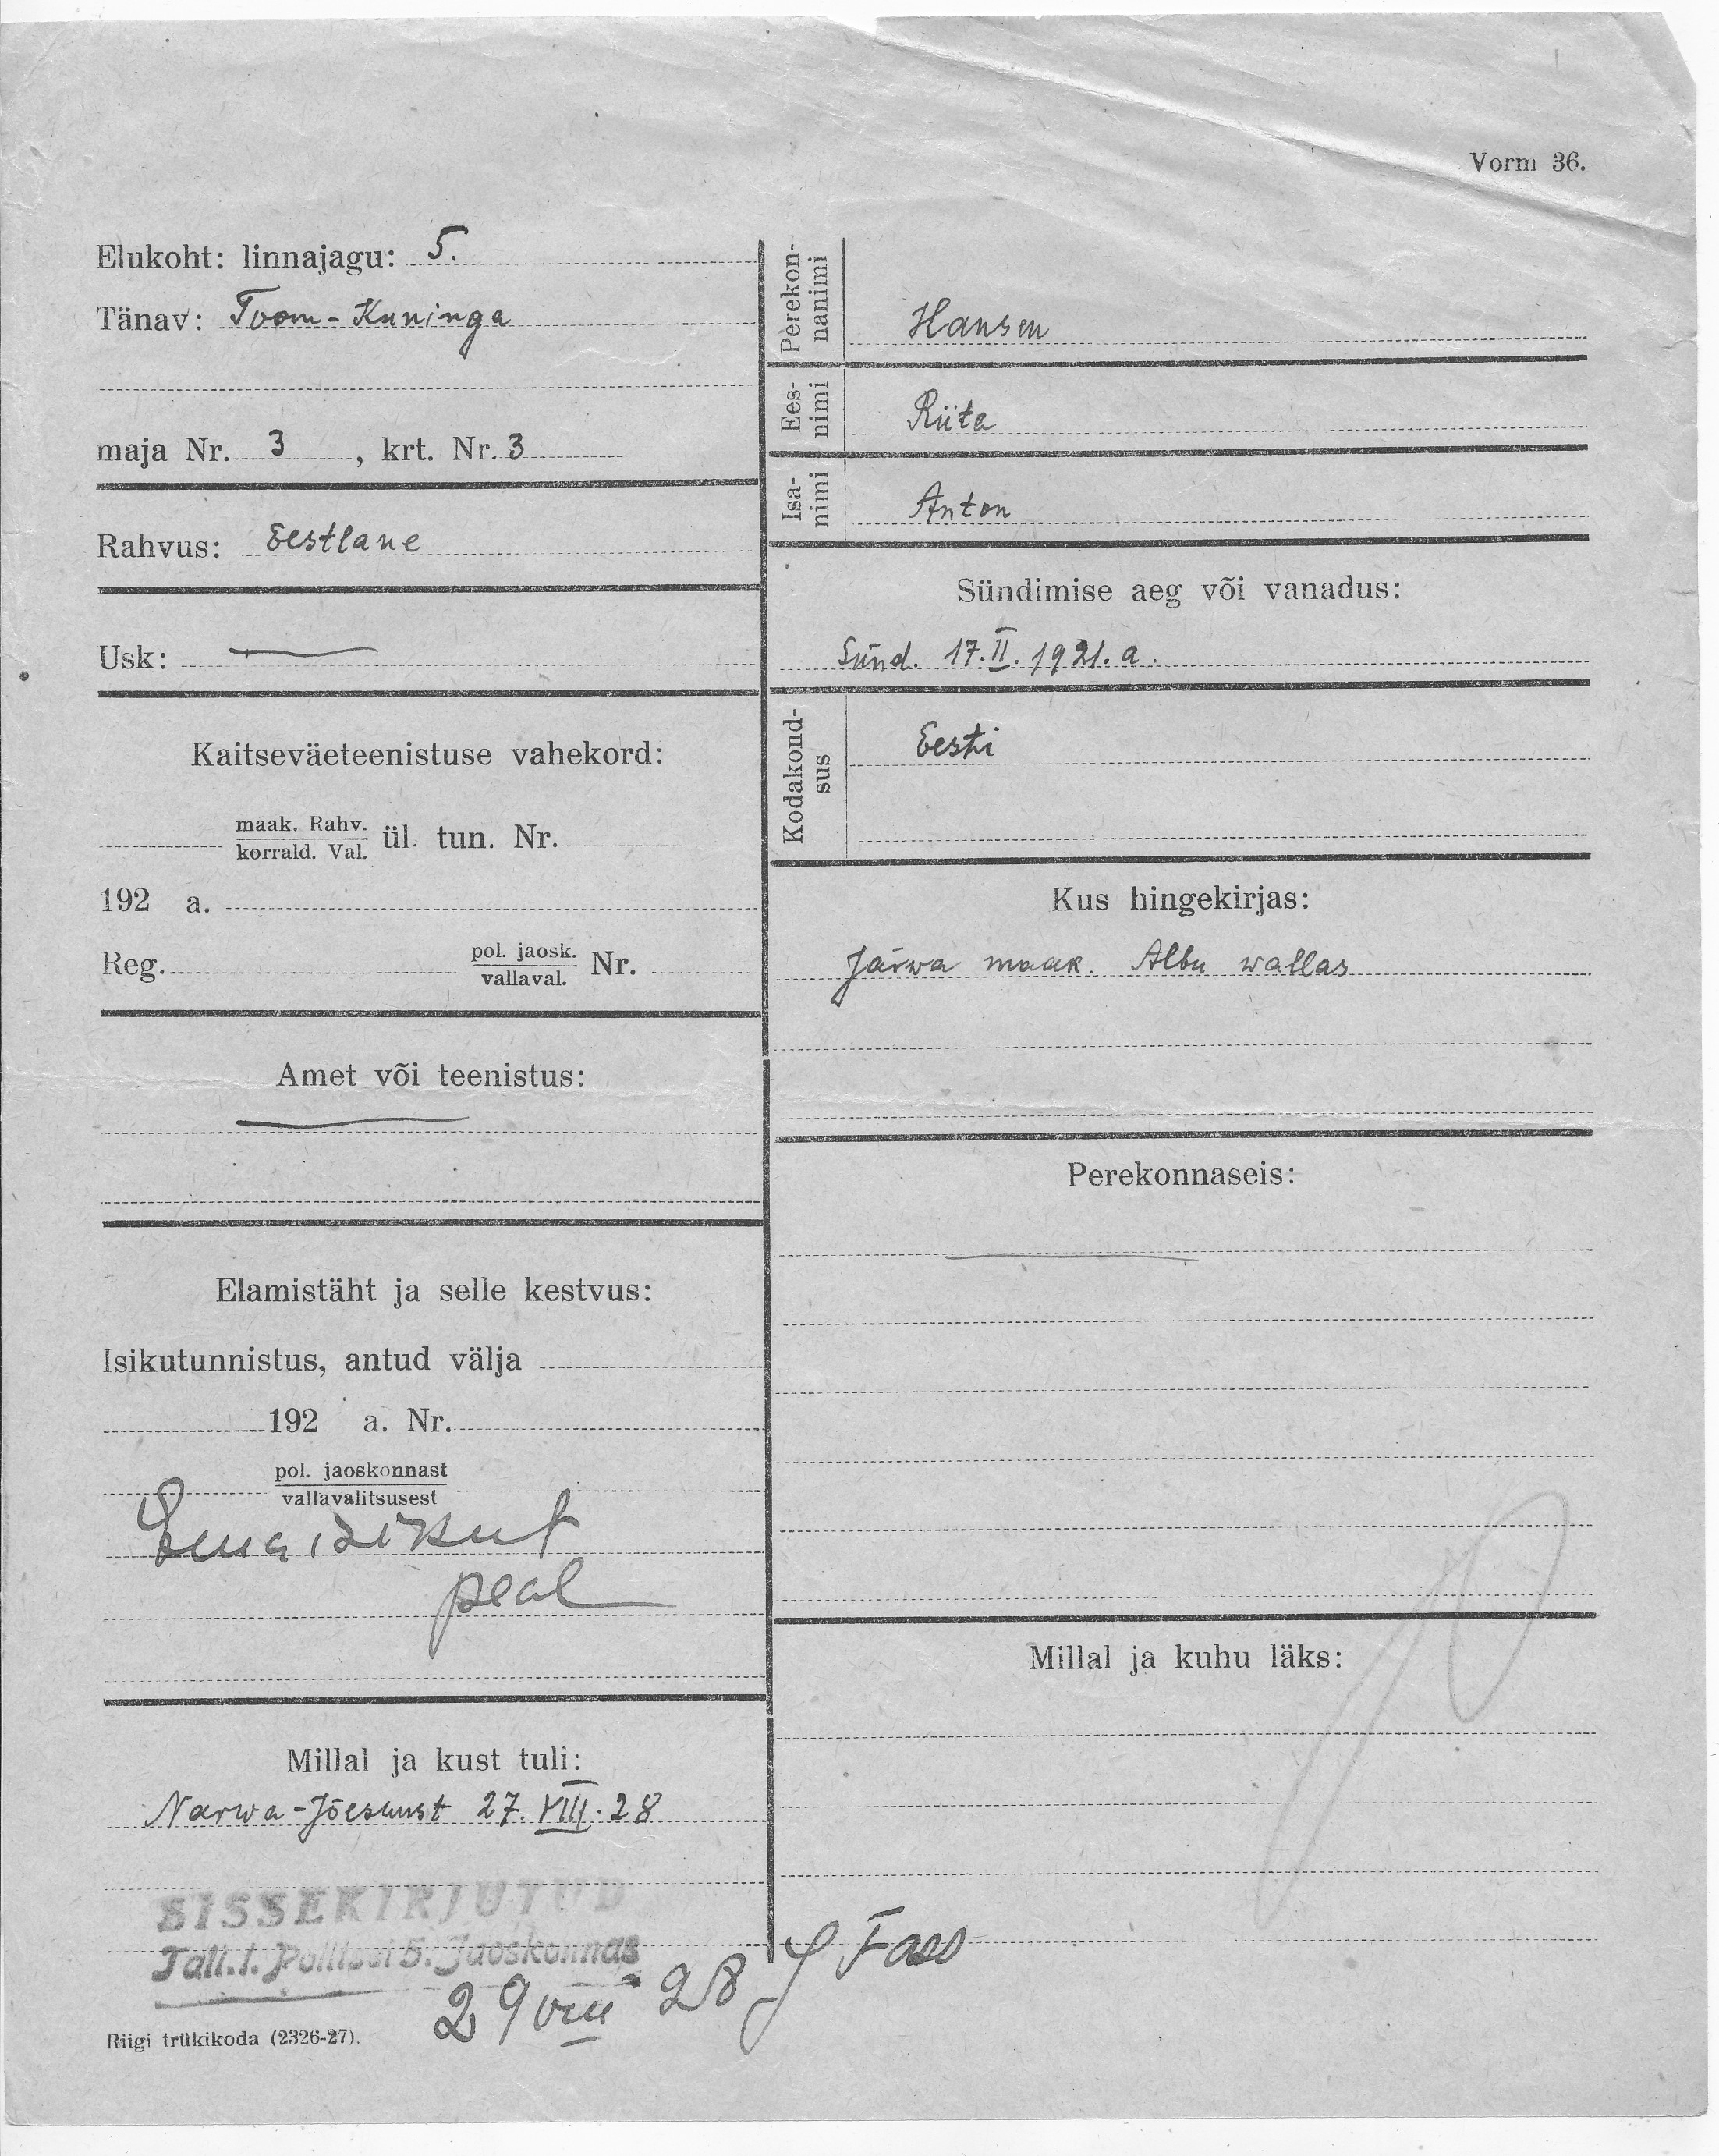 Vorm 36.
Elukoht: linnajagu: 5.
Tänav: Toom-Kuninga
maja Nr. 3, krt. Nr. 3
Rahvus: Eestlane
Usk: —
Kaitseväeteenistuse vahekord:
maak. Rahv.
korrald. Val. ül. tun. Nr.
192 a.
Reg. pol. jaosk.
vallaval. Nr.
Amet või teenistus:
—
Elamistäht ja selle kestvus:
Isikutunnistus, antud välja
192 a. Nr.
pol. jaoskonnast
vallavalitsusest
Ema isikut
peal
Millal ja kust tuli:
Narwa-Jõesuust 27. VIII. 28
SISSEKIRJUTUD
Tall.-l. Politsei 5. Jaoskonnas
29 VIII 28 J Fass
Riigi trükikoda (2326-27).
Perekon-
nanimi
Hansen
Ees-
nimi
Riita
Isa-
nimi
Anton
Sündimise aeg või vanadus:
Sünd. 17. II. 1921. a.
Kodakond-
sus
Eesti
Kus hingekirjas:
Järwa maak. Albu wallas
Perekonnaseis:
—
Millal ja kuhu läks: